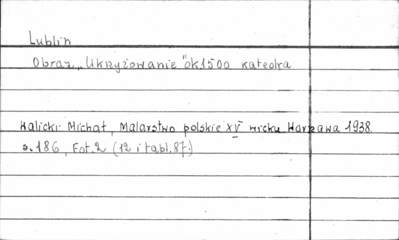 Lublin
Obraz „Ukrzyżowanie" ok 1500 katedra
Walicki Michał, Malarstwo polskie XV wieku Warszawa 1938.
s. 186, Fot. 2 (12 i tabl. 87.)